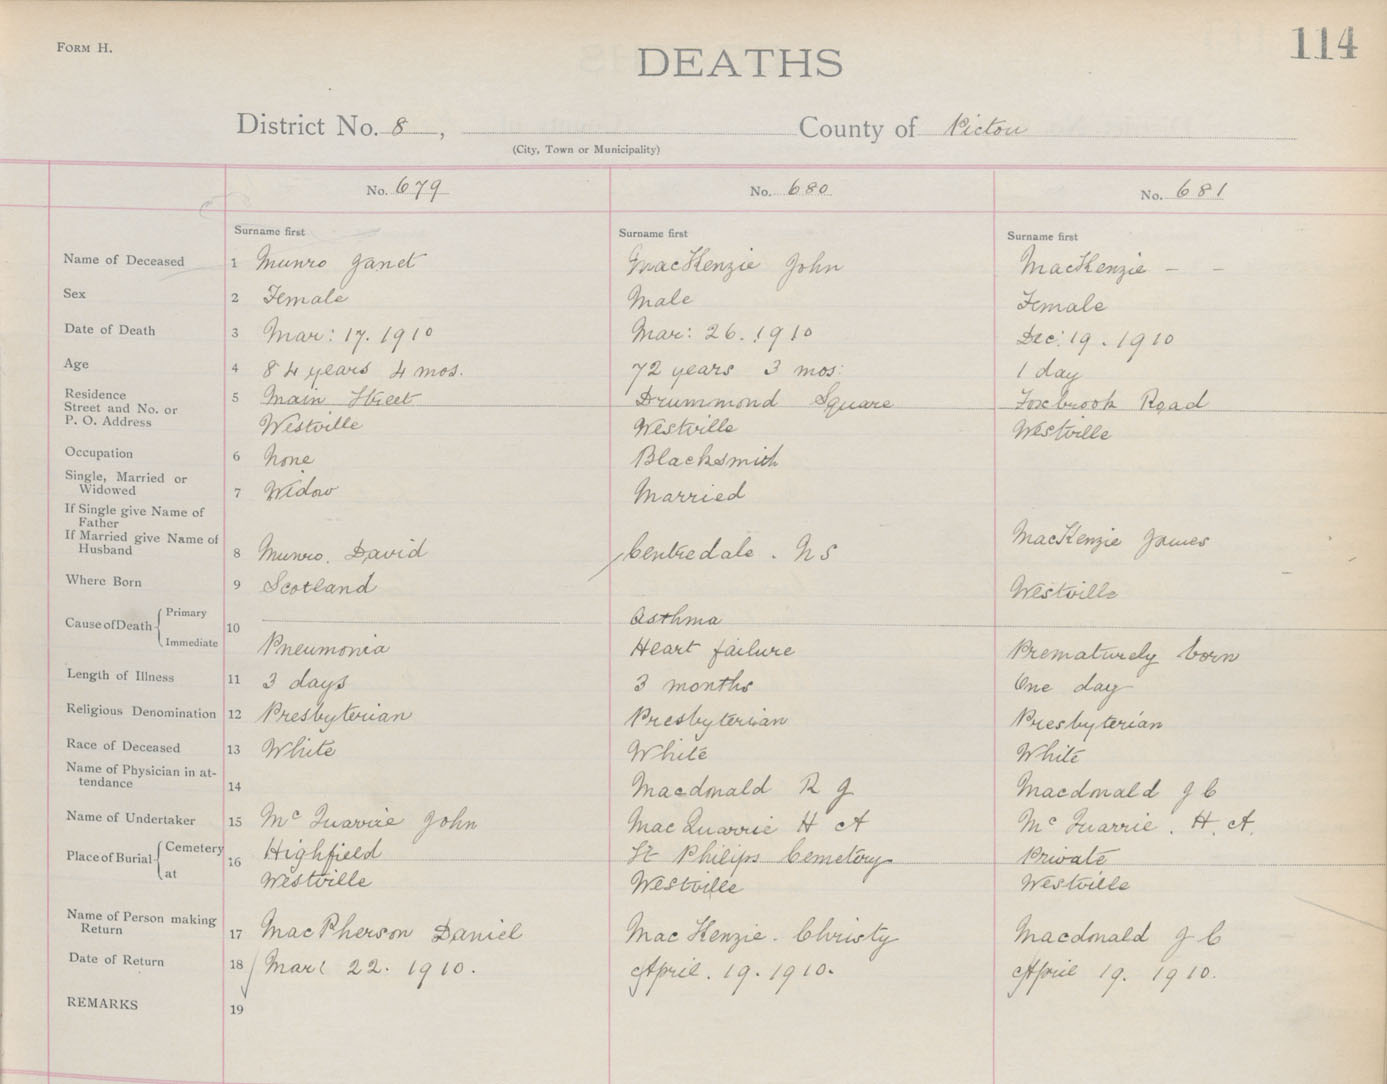 FORM H.
114
DEATHS
District No. 8, County of Pictou
(City, Town or Municipality)
No. 679 No. 680 No. 681
Surname first Surname first Surname first
Name of Deceased 1 Munro Janet MacKenzie John MacKenzie - -
Sex 2 Female Male Female
Date of Death 3 Mar: 17. 1910 Mar: 26. 1910 Dec: 19. 1910
Age 4 84 years 4 mos. 72 years 3 mos: 1 day
Residence 5 Main Street Drummond Square Foxbrook Road
Street and No. or
P. O. Address Westville Westville Westville
Occupation 6 None Blacksmith
Single, Married or
Widowed 7 Widow Married
If Single give Name of
Father
If Married give Name of
Husband 8 Munro. David Centredale. N S MacKenzie James
Where Born 9 Scotland Westville
Cause of Death Primary 10 Asthma
Immediate Pneumonia Heart failure Prematurely born
Length of Illness 11 3 days 3 months One day
Religious Denomination 12 Presbyterian Presbyterian Presbyterian
Race of Deceased 13 White White White
Name of Physician in at-
tendance 14 Macdonald R J Macdonald J C
Name of Undertaker 15 Mc Quarrie John MacQuarrie H A Mc Quarrie. H. A.
Place of Burial Cemetery 16 Highfield St Philips Cemetery Private
at Westville Westville Westville
Name of Person making
Return 17 MacPherson Daniel MacKenzie. Christy Macdonald J C
Date of Return 18 Mar: 22. 1910. April. 19. 1910. April 19. 1910.
REMARKS 19